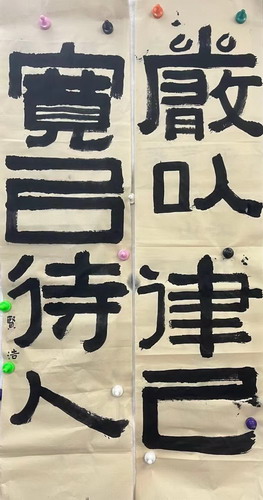 嚴以律己
寬㠯待人
賢